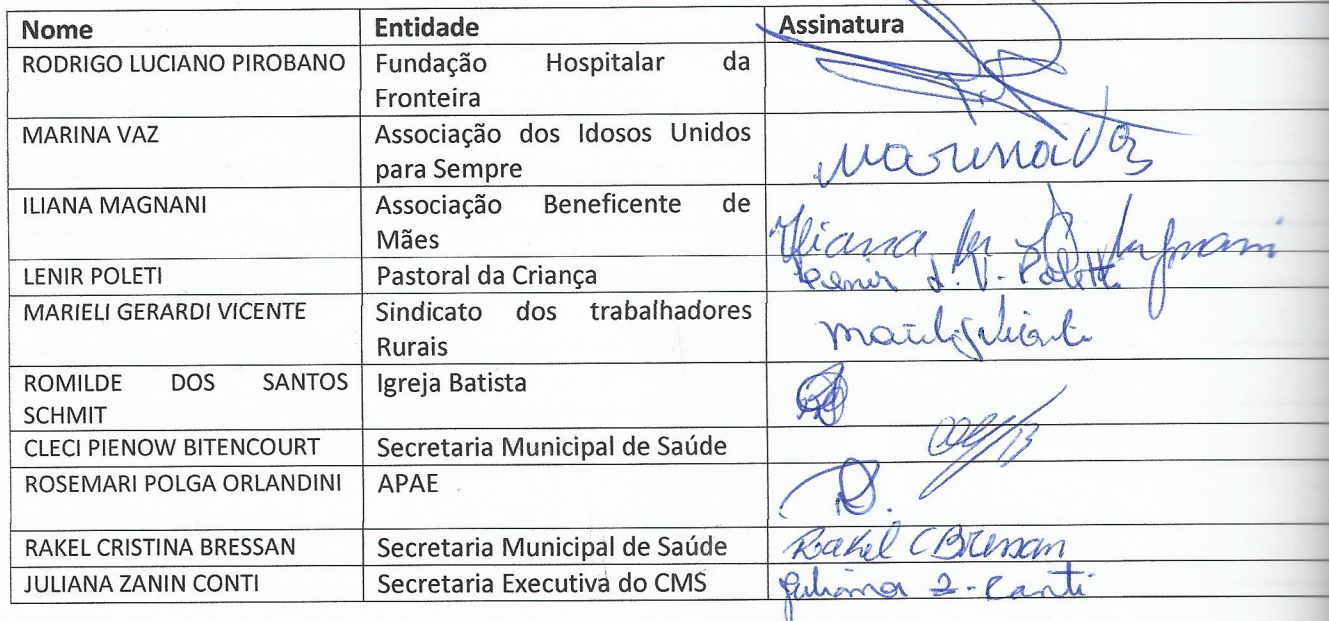 Nome Entidade Assinatura
RODRIGO LUCIANO PIROBANO Fundação Hospitalar da
Fronteira
MARINA VAZ Associação dos Idosos Unidos Marina Vaz
para Sempre
ILIANA MAGNANI Associação Beneficente de
Mães Iliana M Magnani
LENIR POLETI Pastoral da Criança Lenir d. V. Poletti
MARIELI GERARDI VICENTE Sindicato dos trabalhadores
Rurais
ROMILDE DOS SANTOS Igreja Batista
SCHMIT
CLECI PIENOW BITENCOURT Secretaria Municipal de Saúde
ROSEMARI POLGA ORLANDINI APAE R.
RAKEL CRISTINA BRESSAN Secretaria Municipal de Saúde Rakel C Bressan
JULIANA ZANIN CONTI Secretaria Executiva do CMS Juliana Z. Conti